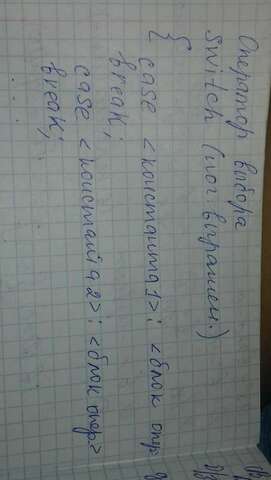 Оператор выбора
switch (лог. выражен.)
{
case <константа1>: <блок опер
break;
case <константа2>: <блок опер>
break;